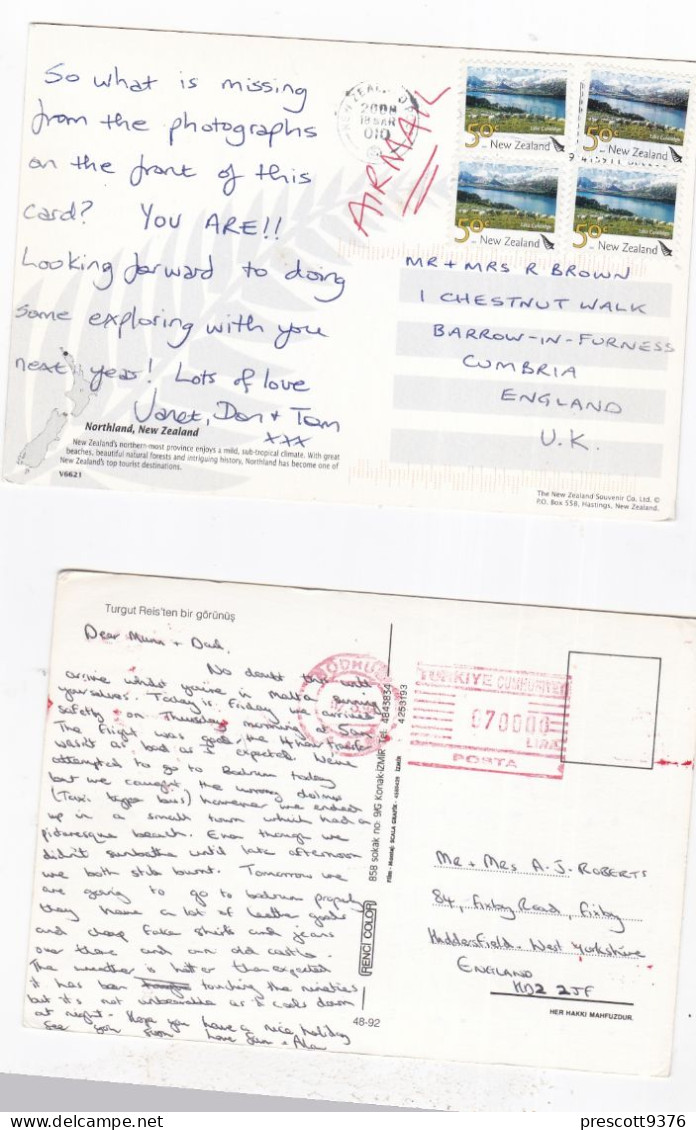 So what is missing
from the photographs
on the front of this
card? YOU ARE!!
Looking forward to doing
some exploring with you
next year! Lots of love
Janet, Don + Tom
xxx
Northland, New Zealand
New Zealand's northern-most province enjoys a mild, sub-tropical climate. With great
beaches, beautiful natural forests and intriguing history, Northland has become one of
New Zealand's top tourist destinations.
V6621
AIRMAIL
50c New Zealand
50c New Zealand
50c New Zealand
50c New Zealand
MR + MRS R BROWN
1 CHESTNUT WALK
BARROW-IN-FURNESS
CUMBRIA
ENGLAND
U.K.
The New Zealand Souvenir Co. Ltd. ©
P.O. Box 558, Hastings, New Zealand.
Turgut Reis'ten bir görünüş
Dear Mum + Dad,
No doubt this will
arrive whilst you're in Malta
yourselves. Today is Friday we arrived
safely on Thursday morning
The flight was good, the 4 hour
wasn't as bad as I expected. We've
attempted to go to Bodrum today
but we caught the wrong dolmus
(Taxi bus) however we ended
up in a small town which had a
picturesque beach. Even though we
didn't sunbathe until late afternoon
we both still burnt. Tomorrow we
are going to go to bodrum properly
they have a lot of leather goods
and cheap fake shirts and jeans
over there and an old castle.
The weather is hotter than expected
it has been touching the nineties
but it's not unbearable as it cools down
at night. Hope you have a nice holiday
See you soon love
858 sokak no: 9/G Konak-İZMİR Tel: 4843834
4253193
RENCİ COLOR
48-92
TÜRKİYE CUMHURİYETİ
070000
LIRA
POSTA
MR + MRS A. J. ROBERTS
84, Fixby Road, Fixby
Huddersfield. West Yorkshire
ENGLAND
HD2 2JF
HER HAKKI MAHFUZDUR.
prescott9376